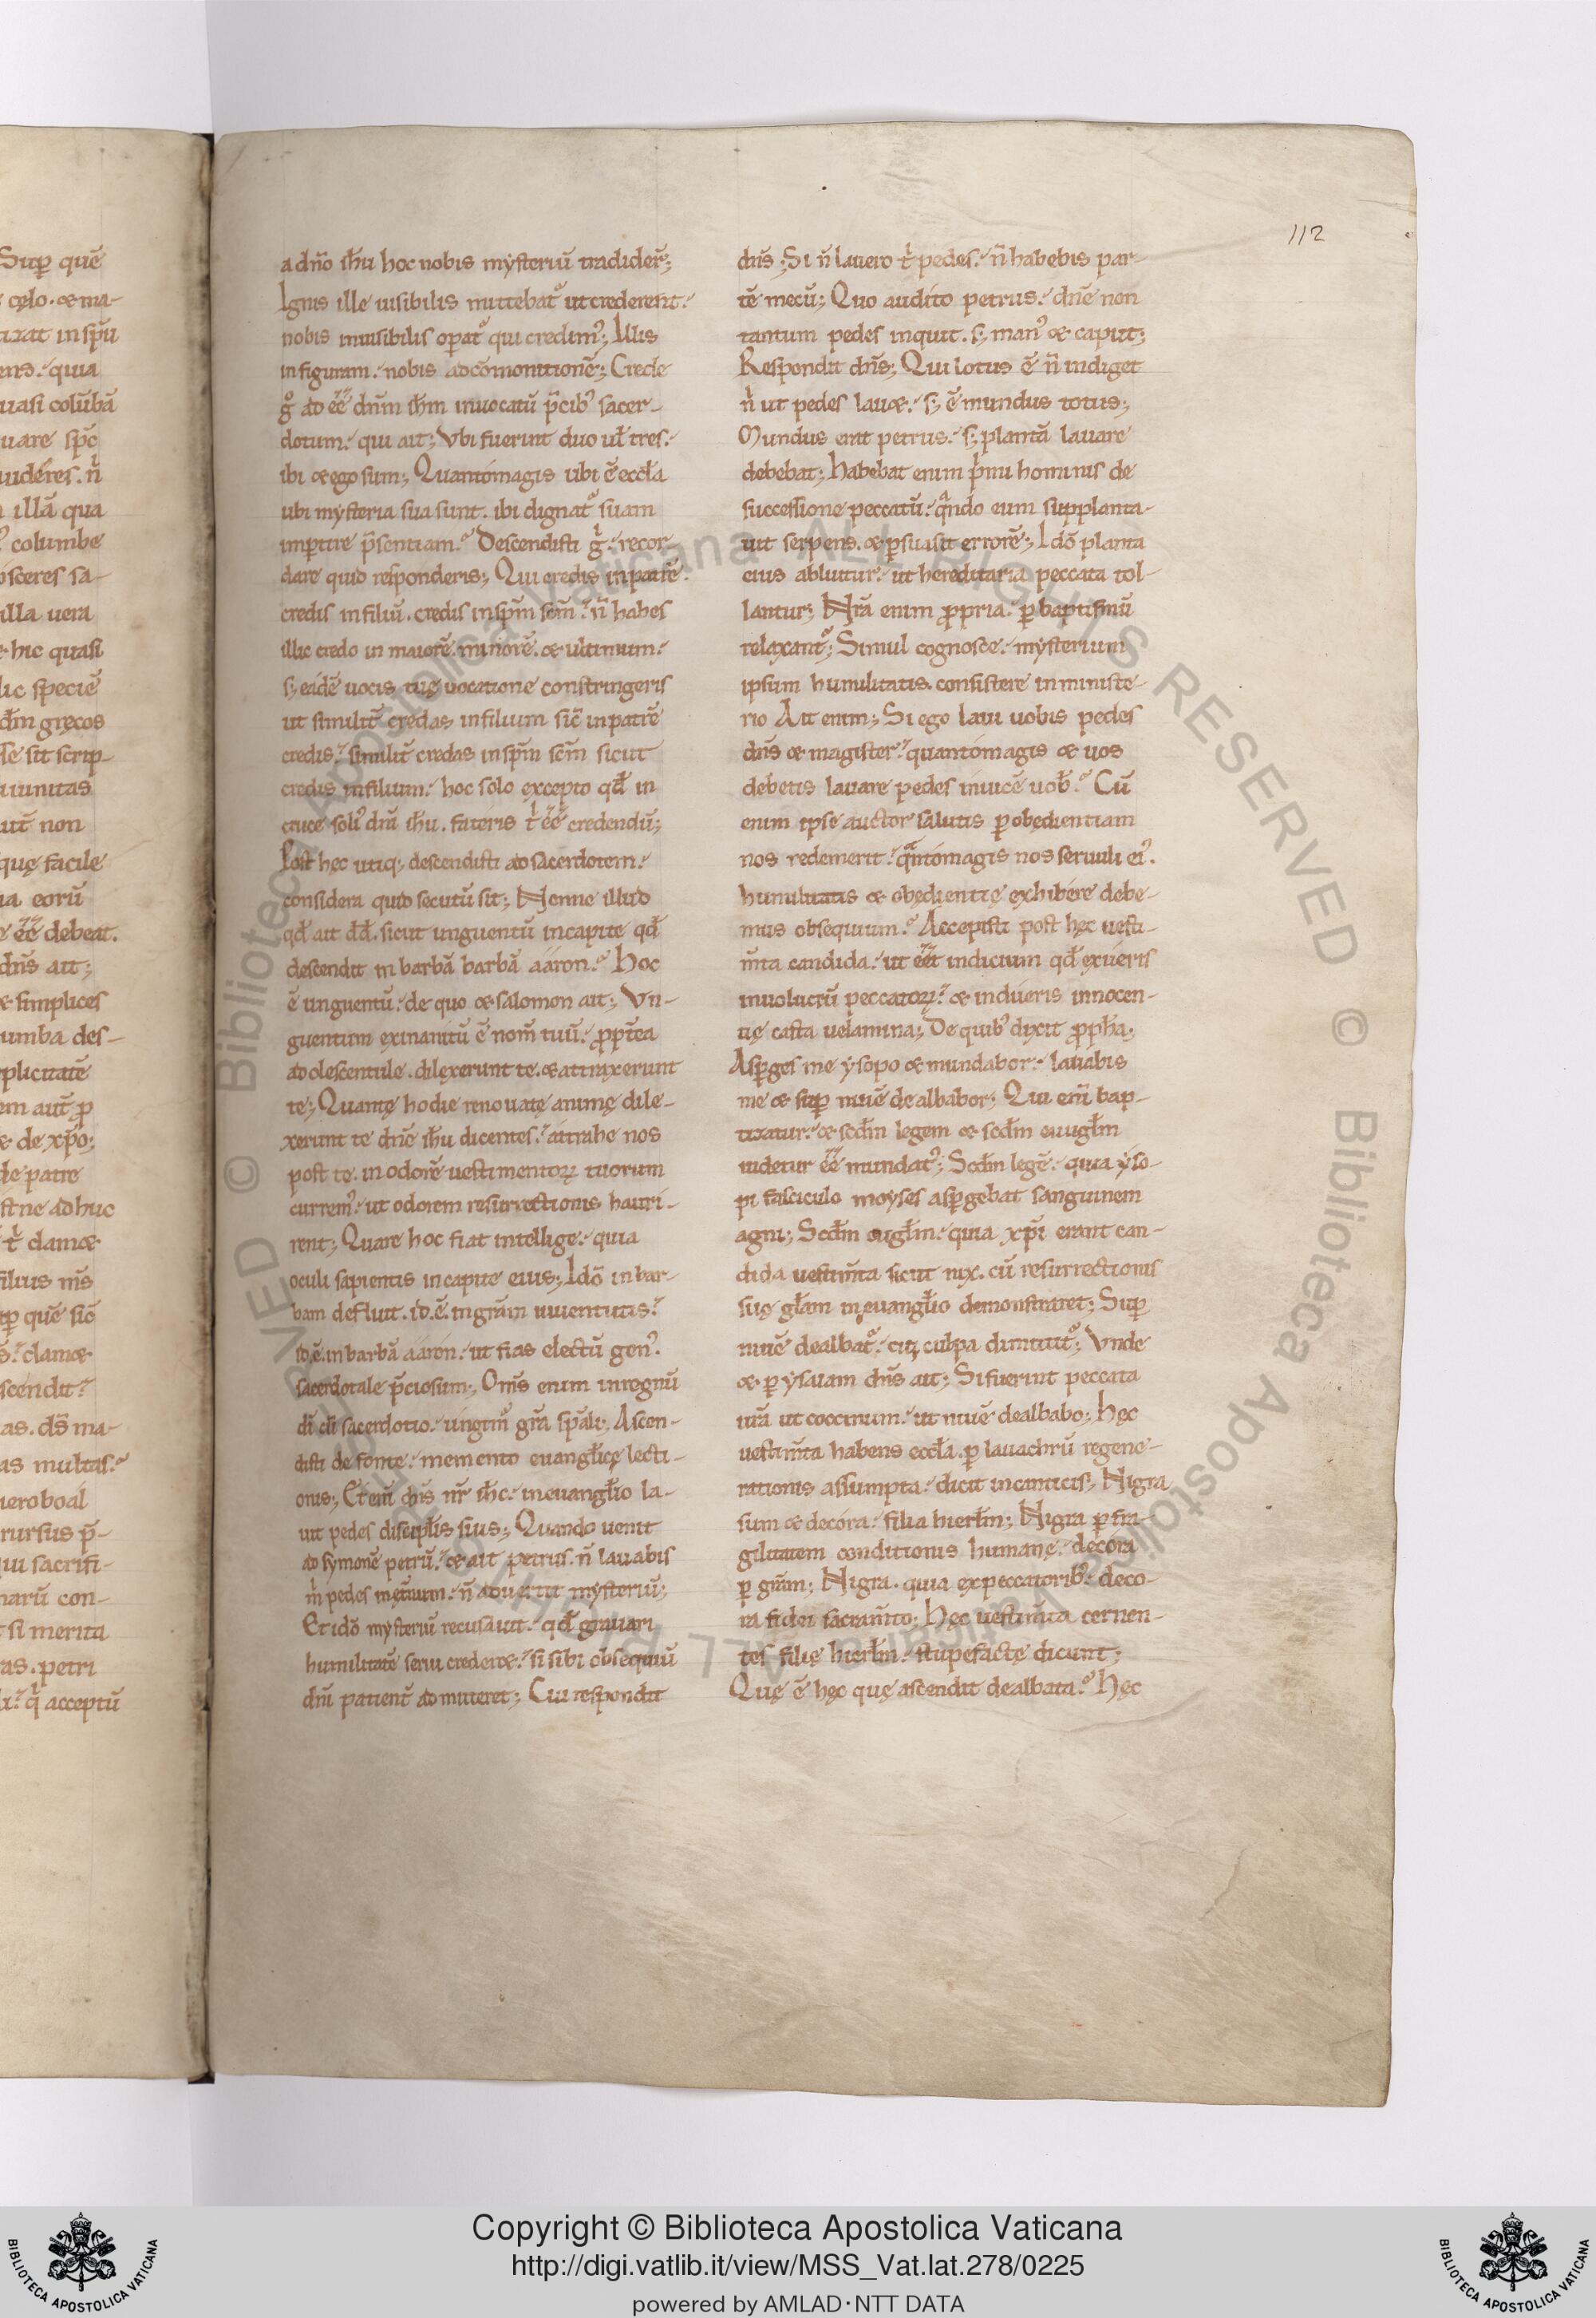 Sup quē
celo. & ma-
tizat in spū
ens. quia
quasi colūbā
illā qua
columbe
illa uera
hic quasi
lic speciē
dm̄ grecos
sit scrip-
aut̄ non
que facile
eorū
ēē debeat.
dn̄s ait;
& simplices
columba des-
plicitatē
em aut̄ p̱
& de xp̄o;
de patre
adhuc
t̊ clam&
filius nr̄s
sup quē sic̄
clam&
scendit
as. ds̄ ma-
as multas.
ieroboal
rursus p̄-
qui sacrifi-
narū con-
si merita
as. petri
acceptū
112
a dn̄o ih̄u hoc nobis mysteriū tradider̄;
Ignis ille uisibilis mittebat᷑ ut crederent.
nobis inuisibilis op̱at᷑ qui credimꝰ; Illis
in figuram. nobis ad cōmonitionē; Crede
g̊ ad ēē dn̄m ih̄m inuocatū p̄cibꝰ sacer-
dotum. qui ait; Vbi fuerint duo ul̄ tres.
ibi & ego sum; Quantómagis ubi ē eccl̄a
ubi mysteria sua sunt. ibi dignat᷑ suam
imp̱tire p̄sentiam. Descendisti g̊. recor-
dare quid responderis; Qui credis in patrē.
credis in filiū. credis in sp̄m sc̄m. n̄ habes
illic credo in maiorē. minorē. & ultimum.
s; eidē uocis tuę uocatione constringeris
ut similit̄ credas in filium sic̄ in patrē
credis. similit̄ credas in sp̄m sc̄m sicut
credis in filium. hoc solo excepto qđ in
cruce soliꝰ dn̄i ih̄u. fateris t̊ ēē credendū;
Post hęc utiq; descendisti ad sacerdotem.
considera quid secutū sit; Nonne illud
qđ ait dđ. sicut unguentū in capite qđ
descendit in barbā barbā áaron. Hoc
ē unguentū. de quo & salomon ait; Vn-
guentum exinanitū ē nom̄ tuū. p̱pt̄ea
adolescentule. dilexerunt te. & attraxerunt
te; Quante hodie renouatę animę dile-
xerunt te dn̄e ih̄u dicentes. attrahe nos
post te. in odorē uestimentoꝝ tuorum
curremꝰ. ut odorem resurrectionis hauri-
rent; Quare hoc fiat intellige. quia
oculi sapientis in capite eius; Idō in bar-
bam defluit. id.ē. in gr̄am iuuentutis.
id.ē. in barbā ááron. ut fias electū genꝰ.
sacerdotale p̄ciosum; Om̄s enim in regnū
dī & in sacerdotio. ungim᷑ gr̄a sp̄ali; Ascen-
disti de fonte. memento euangl̄icę lecti-
onis; Etenī dn̄s nr̄ ih̄c. in euangl̄io la-
uit pedes discipl̄is suis; Quando uenit
ad symonē petrū. & ait petrus. n̄ lauabis
m̊ pedes inet̄num. n̄ aduertit mysteriū;
Et idō mysteriū recusauit. qđ grauari
humilitatē serui creder&. si sibi obsequiū
dn̄i patient̄ admitteret; Cui respondit
dn̄s; Si n̄ lauero t̊ pedes. n̄ habebis par-
tē mecū; Quo audito petrus. dn̄e non
tantum pedes inquit. s; manꝰ & caput;
Respondit dn̄s; Qui lotus ē n̄ indiget
n̊ ut pedes lau&. s; ē mundus totus;
Mundus erat petrus. s; plantā lauare
debebat; habebat enim p̊mi hominis de
successione peccatū. qn̄do eum supplanta-
uit serpens. & p̱suasit errorē; Idō planta
eius abluitur. ut hereditaria peccata tol-
lantur; Nr̄a enim p̱pria. p̱ baptismū
relaxant᷑; Simul cognosce. mysterium
ipsum humilitatis. consistere in ministe-
rio Ait enim; Si ego laui uobis pedes
dn̄s & magister. quantómagis & uos
debetis lauare pedes inuicē uob̄. Cū
enim ipse auctor salutis p̱ obędientiam
nos redemerit. qn̄tómagis nos seruuli eiꝰ.
humilitatis & obędientię exhibére debe-
mus obsequium. Accepisti post hęc uesti-
m̄ta candida. ut eēt indicium qđ exúeris
inuolucrū peccatoꝝ. & indúeris innocen-
tię casta uelamina; De quibꝰ dixit p̱ph̄a;
Asp̱ges me ysopo & mundabor. lauabis
me & sup̱ niuē dealbabor; Qui enī bap-
tizatur. & scd̄m legem & scd̄m euugl̄m
uidetur ēē mundatꝰ; Scd̄m legē. quia yso-
pi fasciculo moyses asp̱gebat sanguinem
agni; Scd̄m eugl̄m. quia xp̄i erant can-
dida uestim̄ta sicut nix. cū resurrectionis
suę gl̄am in euangl̄io demonstraret; Sup̱
niuē dealbat᷑. cui culpa dimittit᷑; Vnde
& p̱ ysaiam dn̄s ait; Si fuerint peccata
ur̄a ut coccinum. ut niuē dealbabo; Hęc
uestim̄ta habens eccl̄a. p̱ lauachrū regene-
rationis assumpta. dicit in canticis; Nigra
sum & decóra. filia hierl̄m; Nigra p̱ fra-
gilitatem conditionis humanę. decóra
p̱ gr̄am; Nigra. quia ex peccatoribꝰ. deco-
ra fidei sacram̄to; Hęc uestim̄ta cernen-
tes filię hierl̄m. stupefactę dicunt;
Quę ē hęc quę ascendit dealbata. Hęc
© Biblioteca Apostolica Vaticana ALL RIGHTS RESERVED © Biblioteca Apostolica Vaticana ALL RIGHTS RESERVED
Copyright © Biblioteca Apostolica Vaticana
http://digi.vatlib.it/view/MSS_Vat.lat.278/0225
powered by AMLAD·NTT DATA
BIBLIOTECA APOSTOLICA VATICANA
BIBLIOTECA APOSTOLICA VATICANA